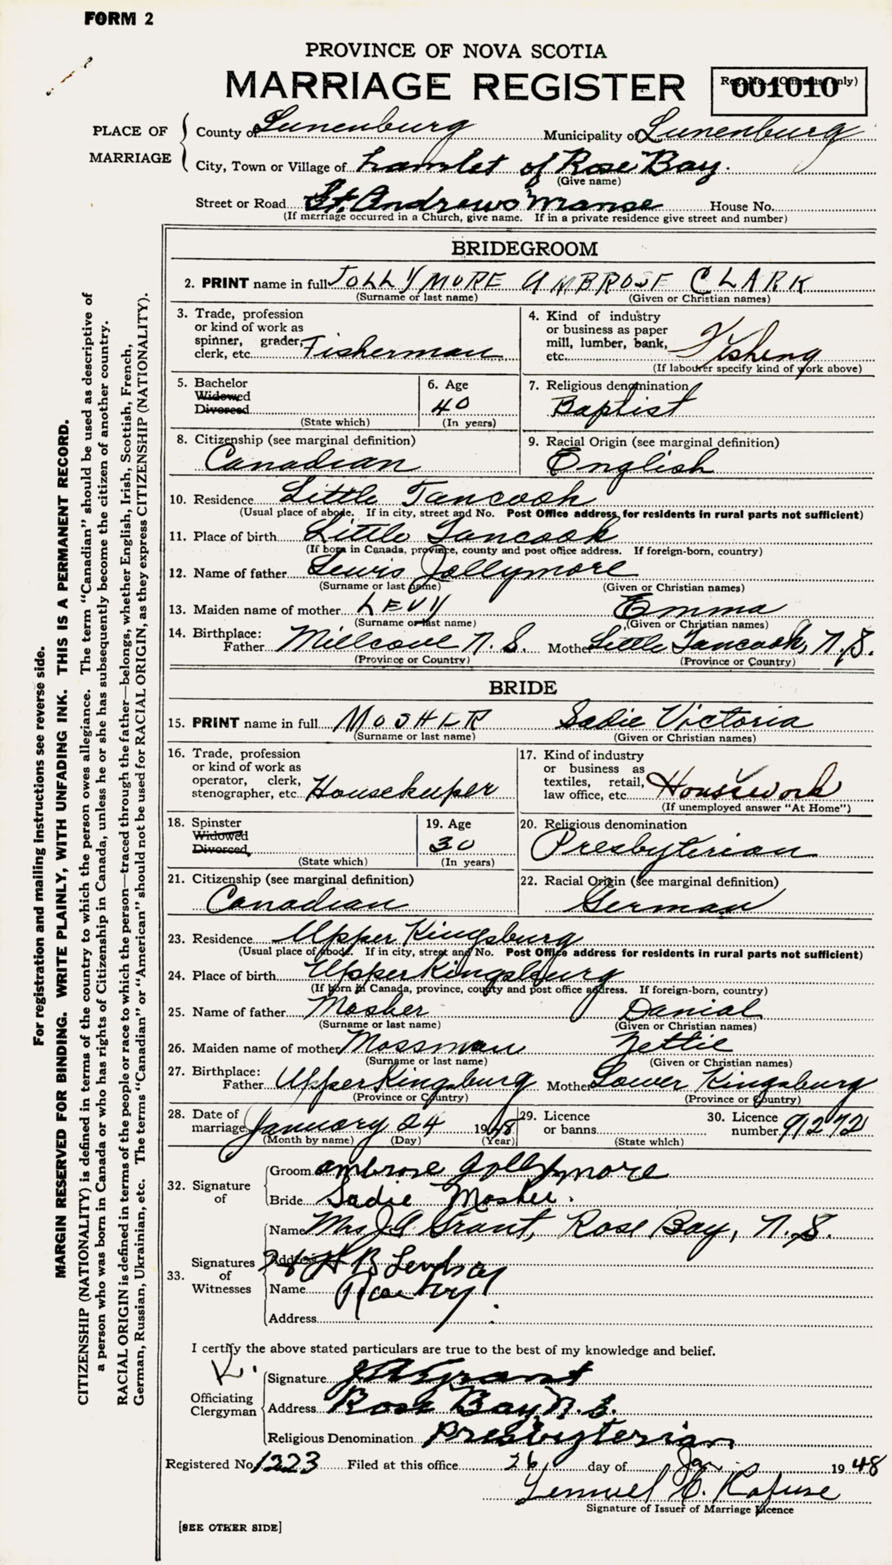 FORM 2
PROVINCE OF NOVA SCOTIA
MARRIAGE REGISTER
001010
PLACE OF MARRIAGE
County of Lunenburg Municipality of Lunenburg
City, Town or Village of hamlet of Rose Bay.
(Give name)
Street or Road St. Andrews Manse House No.
(If marriage occurred in a Church, give name. If in a private residence give street and number)
BRIDEGROOM
2. PRINT name in full JOLLYMORE AMBROSE CLARK
(Surname or last name) (Given or Christian names)
3. Trade, profession
or kind of work as
spinner, grader,
clerk, etc. Fisherman
4. Kind of industry
or business as paper
mill, lumber, bank,
etc. Fishing
(If labourer specify kind of work above)
5. Bachelor
Widowed
Divorced
(State which)
6. Age
40
(In years)
7. Religious denomination
Baptist
8. Citizenship (see marginal definition)
Canadian
9. Racial Origin (see marginal definition)
English
10. Residence Little Tancook
(Usual place of abode. If in city, street and No. Post Office address for residents in rural parts not sufficient)
11. Place of birth Little Tancook
(If born in Canada, province, county and post office address. If foreign-born, country)
12. Name of father Lewis Jollymore
(Surname or last name) (Given or Christian names)
13. Maiden name of mother LEVY Emma
(Surname or last name) (Given or Christian names)
14. Birthplace:
Father Millcove N.S. Mother Little Tancook, N.S.
(Province or Country) (Province or Country)
BRIDE
15. PRINT name in full MOSHER Sadie Victoria
(Surname or last name) (Given or Christian names)
16. Trade, profession
or kind of work as
operator, clerk,
stenographer, etc. Housekeeper
17. Kind of industry
or business as
textiles, retail,
law office, etc. Housework
(If unemployed answer "At Home")
18. Spinster
Widowed
Divorced
(State which)
19. Age
30
(In years)
20. Religious denomination
Presbyterian
21. Citizenship (see marginal definition)
Canadian
22. Racial Origin (see marginal definition)
German
23. Residence Upper Kingsburg
(Usual place of abode. If in city, street and No. Post Office address for residents in rural parts not sufficient)
24. Place of birth Upper Kingsburg
(If born in Canada, province, county and post office address. If foreign-born, country)
25. Name of father Mosher Danial
(Surname or last name) (Given or Christian names)
26. Maiden name of mother Mossman Nettie
(Surname or last name) (Given or Christian names)
27. Birthplace:
Father Upper Kingsburg Mother Lower Kingsburg
(Province or Country) (Province or Country)
28. Date of
marriage January 24 1948
(Month by name) (Day) (Year)
29. Licence
or banns
(State which)
30. Licence
number 91272
32. Signature
of
Groom Ambrose Jollymore
Bride Sadie Mosher.
33. Signatures
of
Witnesses
Name Mrs J A Grant, Rose Bay, N.S.
Address H B Lindsay
Name
Address
I certify the above stated particulars are true to the best of my knowledge and belief.
Officiating
Clergyman
Signature J A Grant
Address Rose Bay N.S.
Religious Denomination Presbyterian
Registered No. 1223 Filed at this office 26 day of Jan. 1948
Lemuel C. Rafuse
Signature of Issuer of Marriage Licence
[SEE OTHER SIDE]
For registration and mailing instructions see reverse side.
MARGIN RESERVED FOR BINDING. WRITE PLAINLY, WITH UNFADING INK. THIS IS A PERMANENT RECORD.
CITIZENSHIP (NATIONALITY) is defined in terms of the country to which the person owes allegiance. The term "Canadian" should be used as descriptive of
a person who was born in Canada or who has rights of Citizenship in Canada, unless he or she has subsequently become the citizen of another country.
RACIAL ORIGIN is defined in terms of the people or race to which the person—traced through the father—belongs, whether English, Irish, Scottish, French,
German, Russian, Ukrainian, etc. The terms "Canadian" or "American" should not be used for RACIAL ORIGIN, as they express CITIZENSHIP (NATIONALITY).